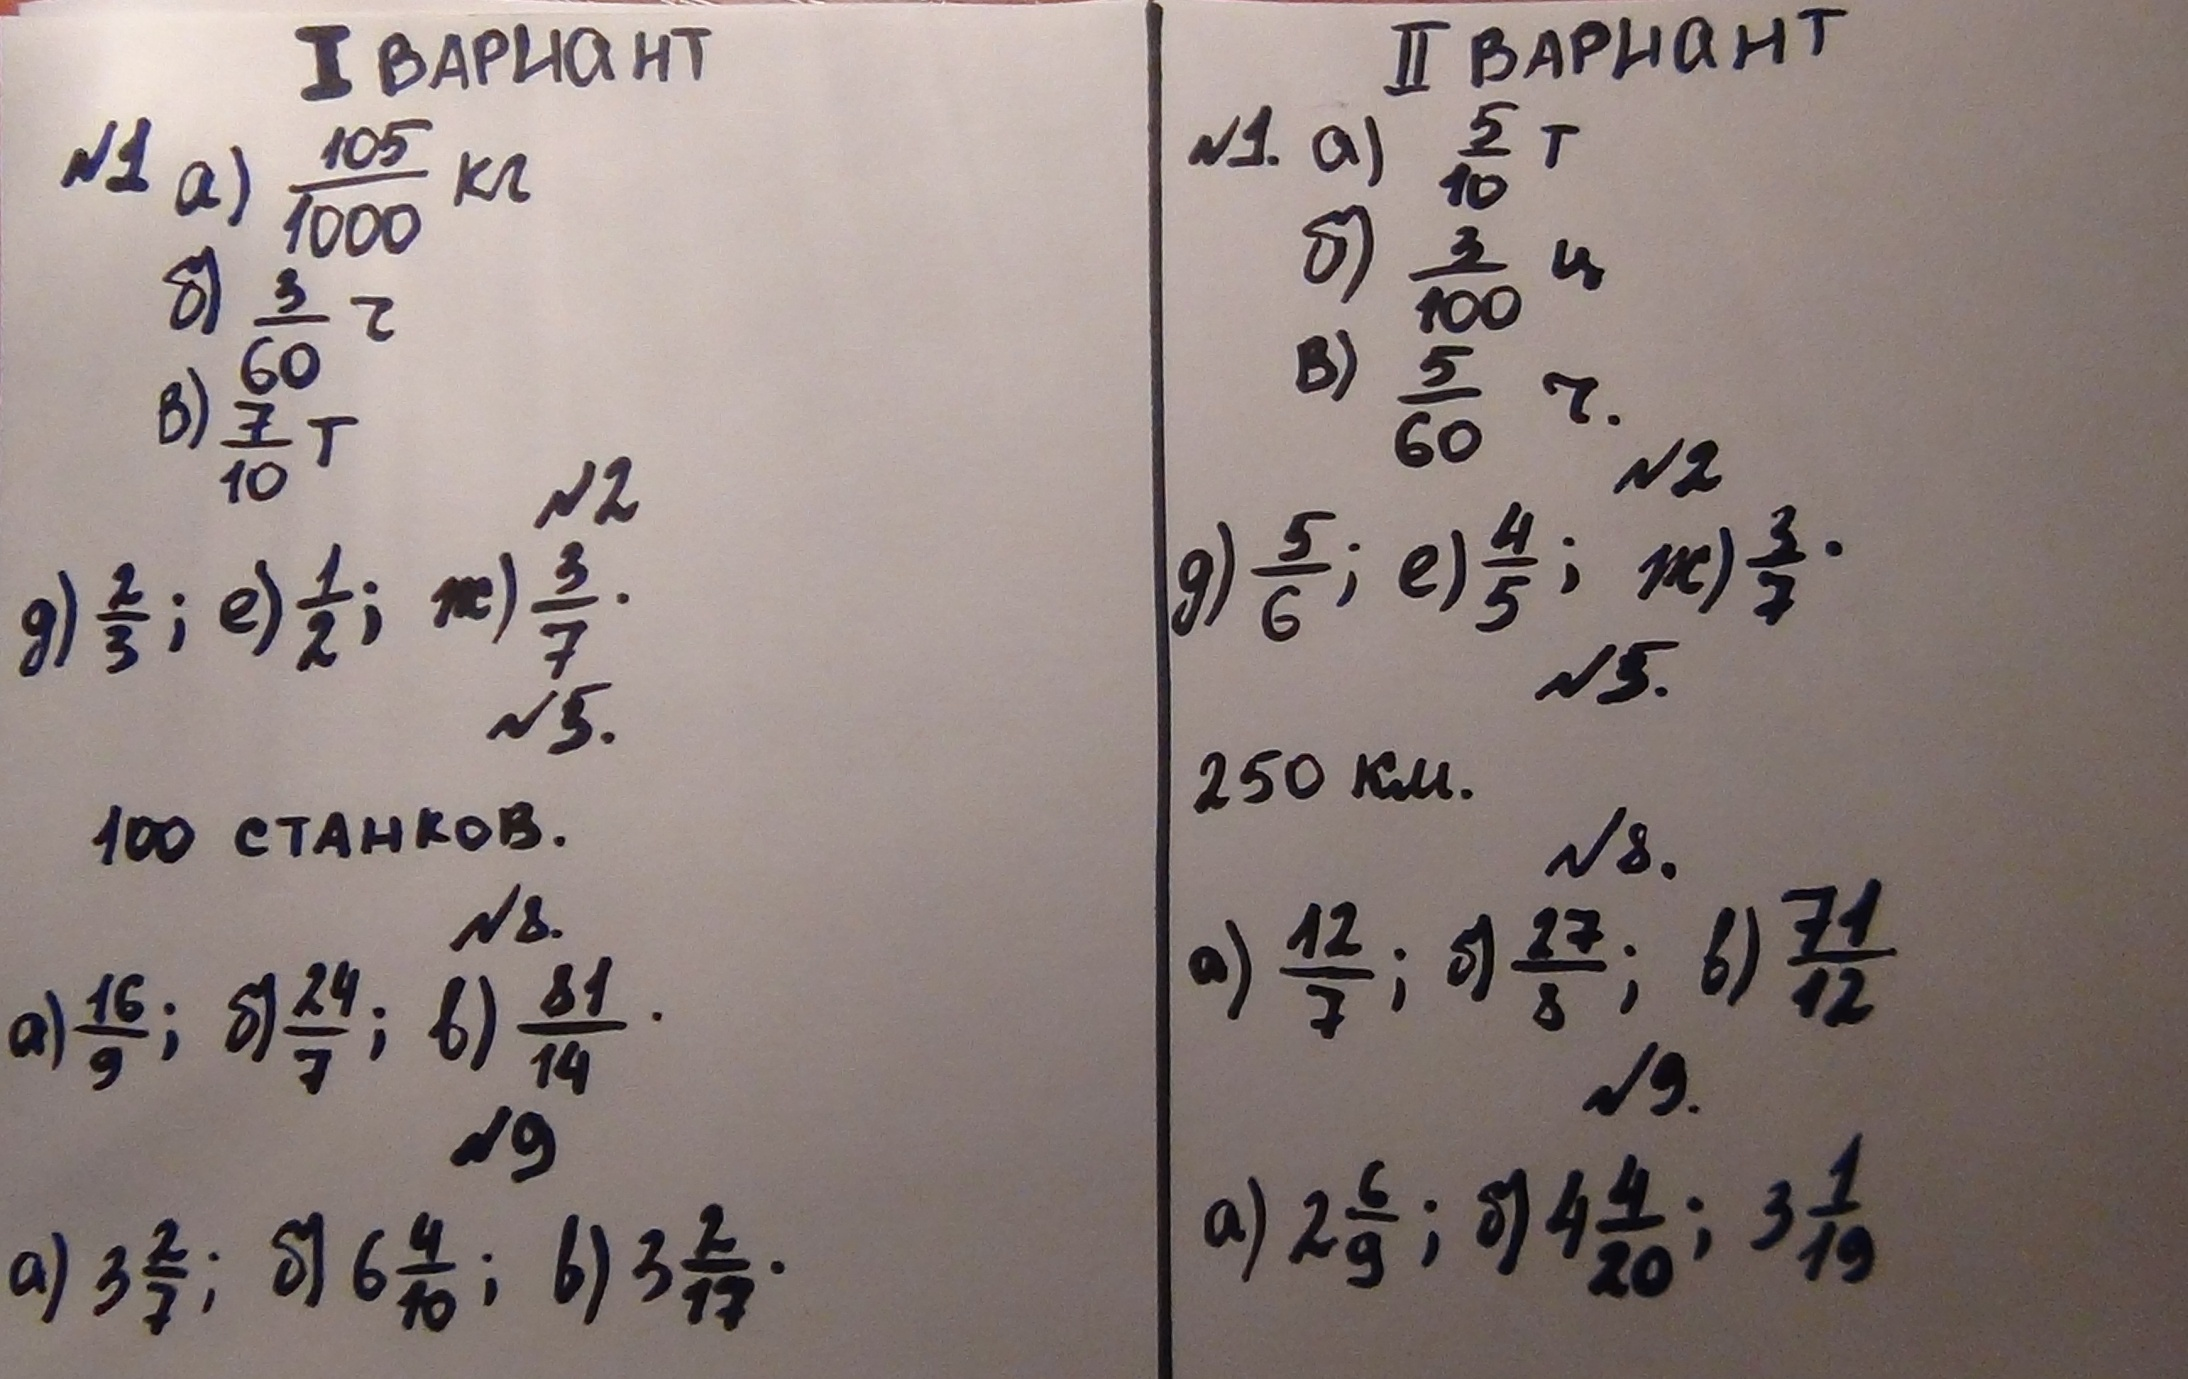 I ВАРИАНТ
№1 а) 105/1000 кг
б) 3/60 ч
в) 7/10 т
№2
д) 2/3; е) 1/2; ж) 3/7.
№5.
100 станков.
№8.
а) 16/9; б) 24/7; в) 81/14.
№9
а) 3 2/7; б) 6 4/10; в) 3 2/17.
II ВАРИАНТ
№1. а) 5/10 т
б) 3/100 ц
в) 5/60 ч.
№2
д) 5/6; е) 4/5; ж) 3/7.
№5.
250 км.
№8.
а) 12/7; б) 27/8; в) 71/12
№9.
а) 2 6/9; б) 4 4/20; 3 1/19